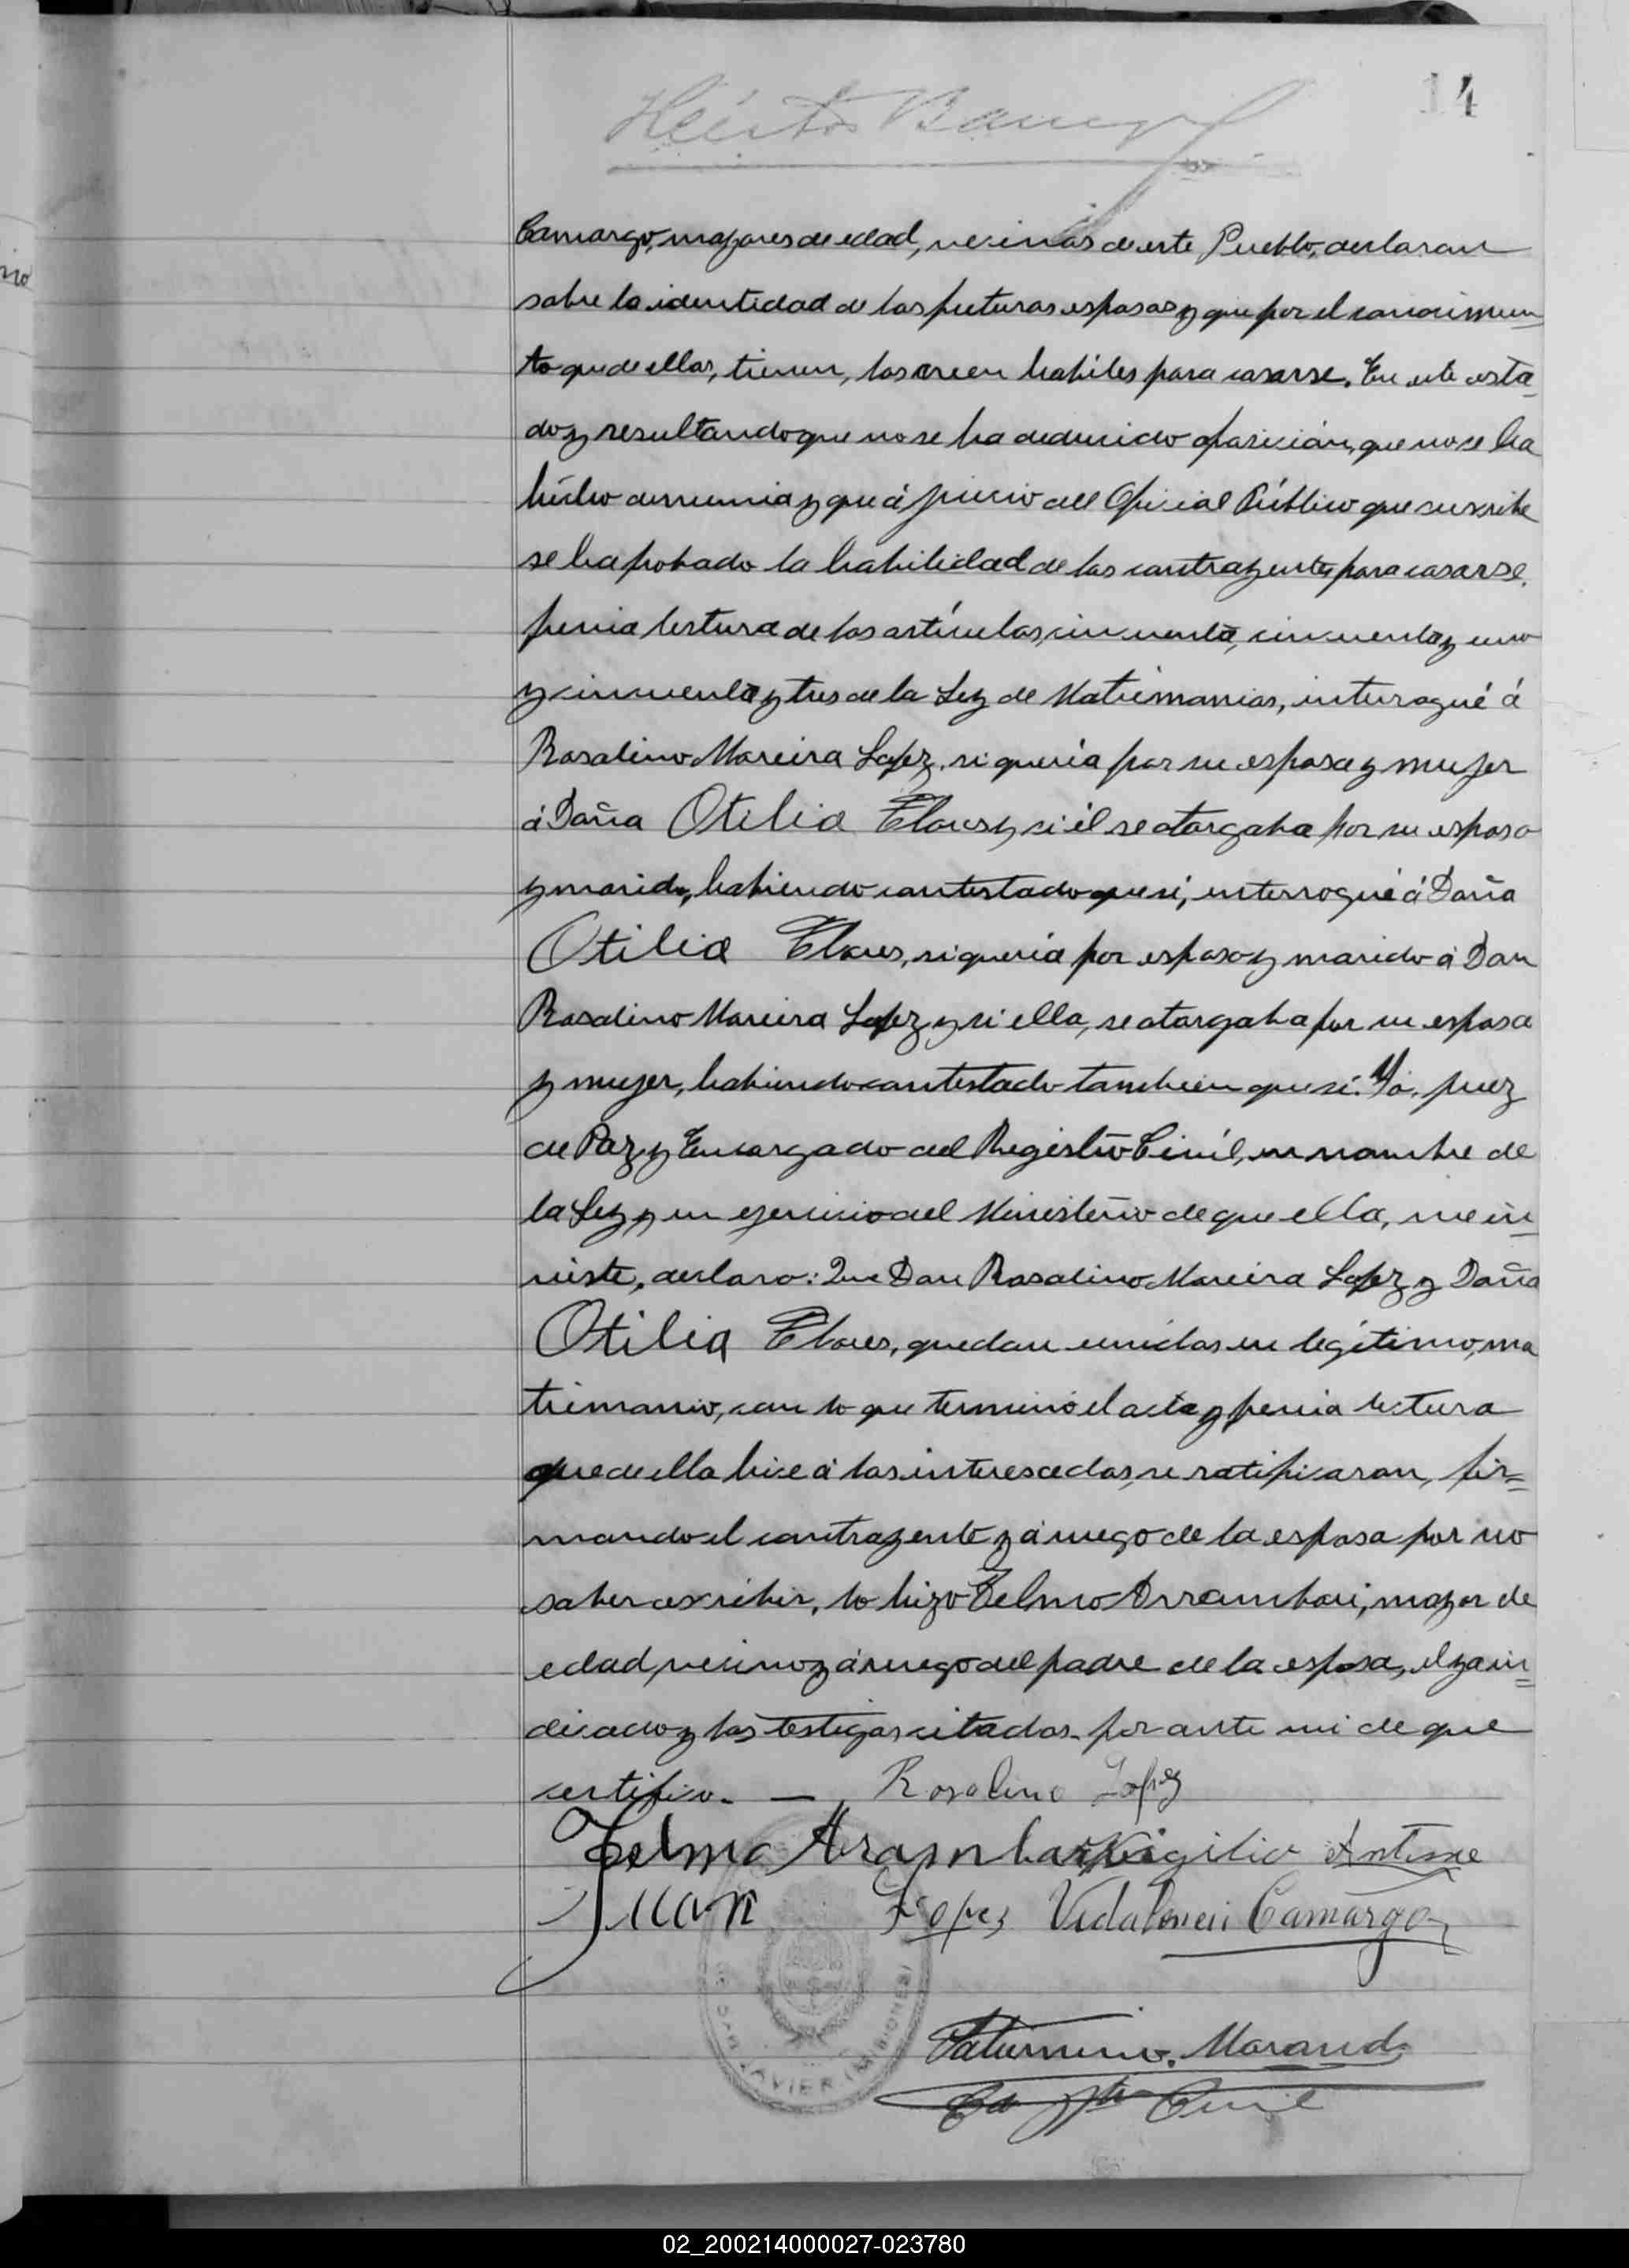 14
Héctor
Camargo, mayores de edad, vecinos de este Pueblo, declaran
sobre la identidad de los futuros esposos y que por el conocimien
to que de ellos, tienen, los creen habiles para casarse. En este esta-
do y resultando que no se ha deducido oposición, que no se ha
hécho denuncia y que á juicio del Oficial Público que suscribe
se ha probado la habilidad de los contrayentes para casarse,
previa lectura de los artículos, cincuenta, cincuenta y uno
y cincuenta y tres de la Ley de Matrimonios, interogué á
Rosalino Moreira Lopez, si quería por su esposa y mujer
á Doña Otilia Flores y si él se otorgaba por su esposo
y marido, habiendo contestado que sí, interrogué á Doña
Otilia Flores, si quería por esposo y marido á Don
Rosalino Moreira Lopez y si ella, se otorgaba por su esposa
y mujer, habiendo contestado tambien que sí. Yó, Juez
de Paz y Encargado del Registro Civíl, en nombre de
la Ley y en ejercicio del Ministerio de que ella, me in-
viste, declaro: Que Don Rosalino Moreira Lopez y Doña
Otilia Flores, quedan unidos en legítimo, ma
trimonio, con lo que terminó el acta y previa lectura
que de ella hice á los interesados, se ratificaron, fir=
mando el contrayente y á ruego de la esposa por no
saber escribir, lo hizo Telmo Arrambari, mayor de
edad, vecino y á ruego del padre de la esposa, el ya in=
dicado y los testigos citados. por ante mi de que
certifico. — Rosalino Lopez
Telmo Arambari Virgilio
Juan Lopez Camargo
SAN JAVIER (MISIONES)
Saturnino
Civil
02_200214000027-023780